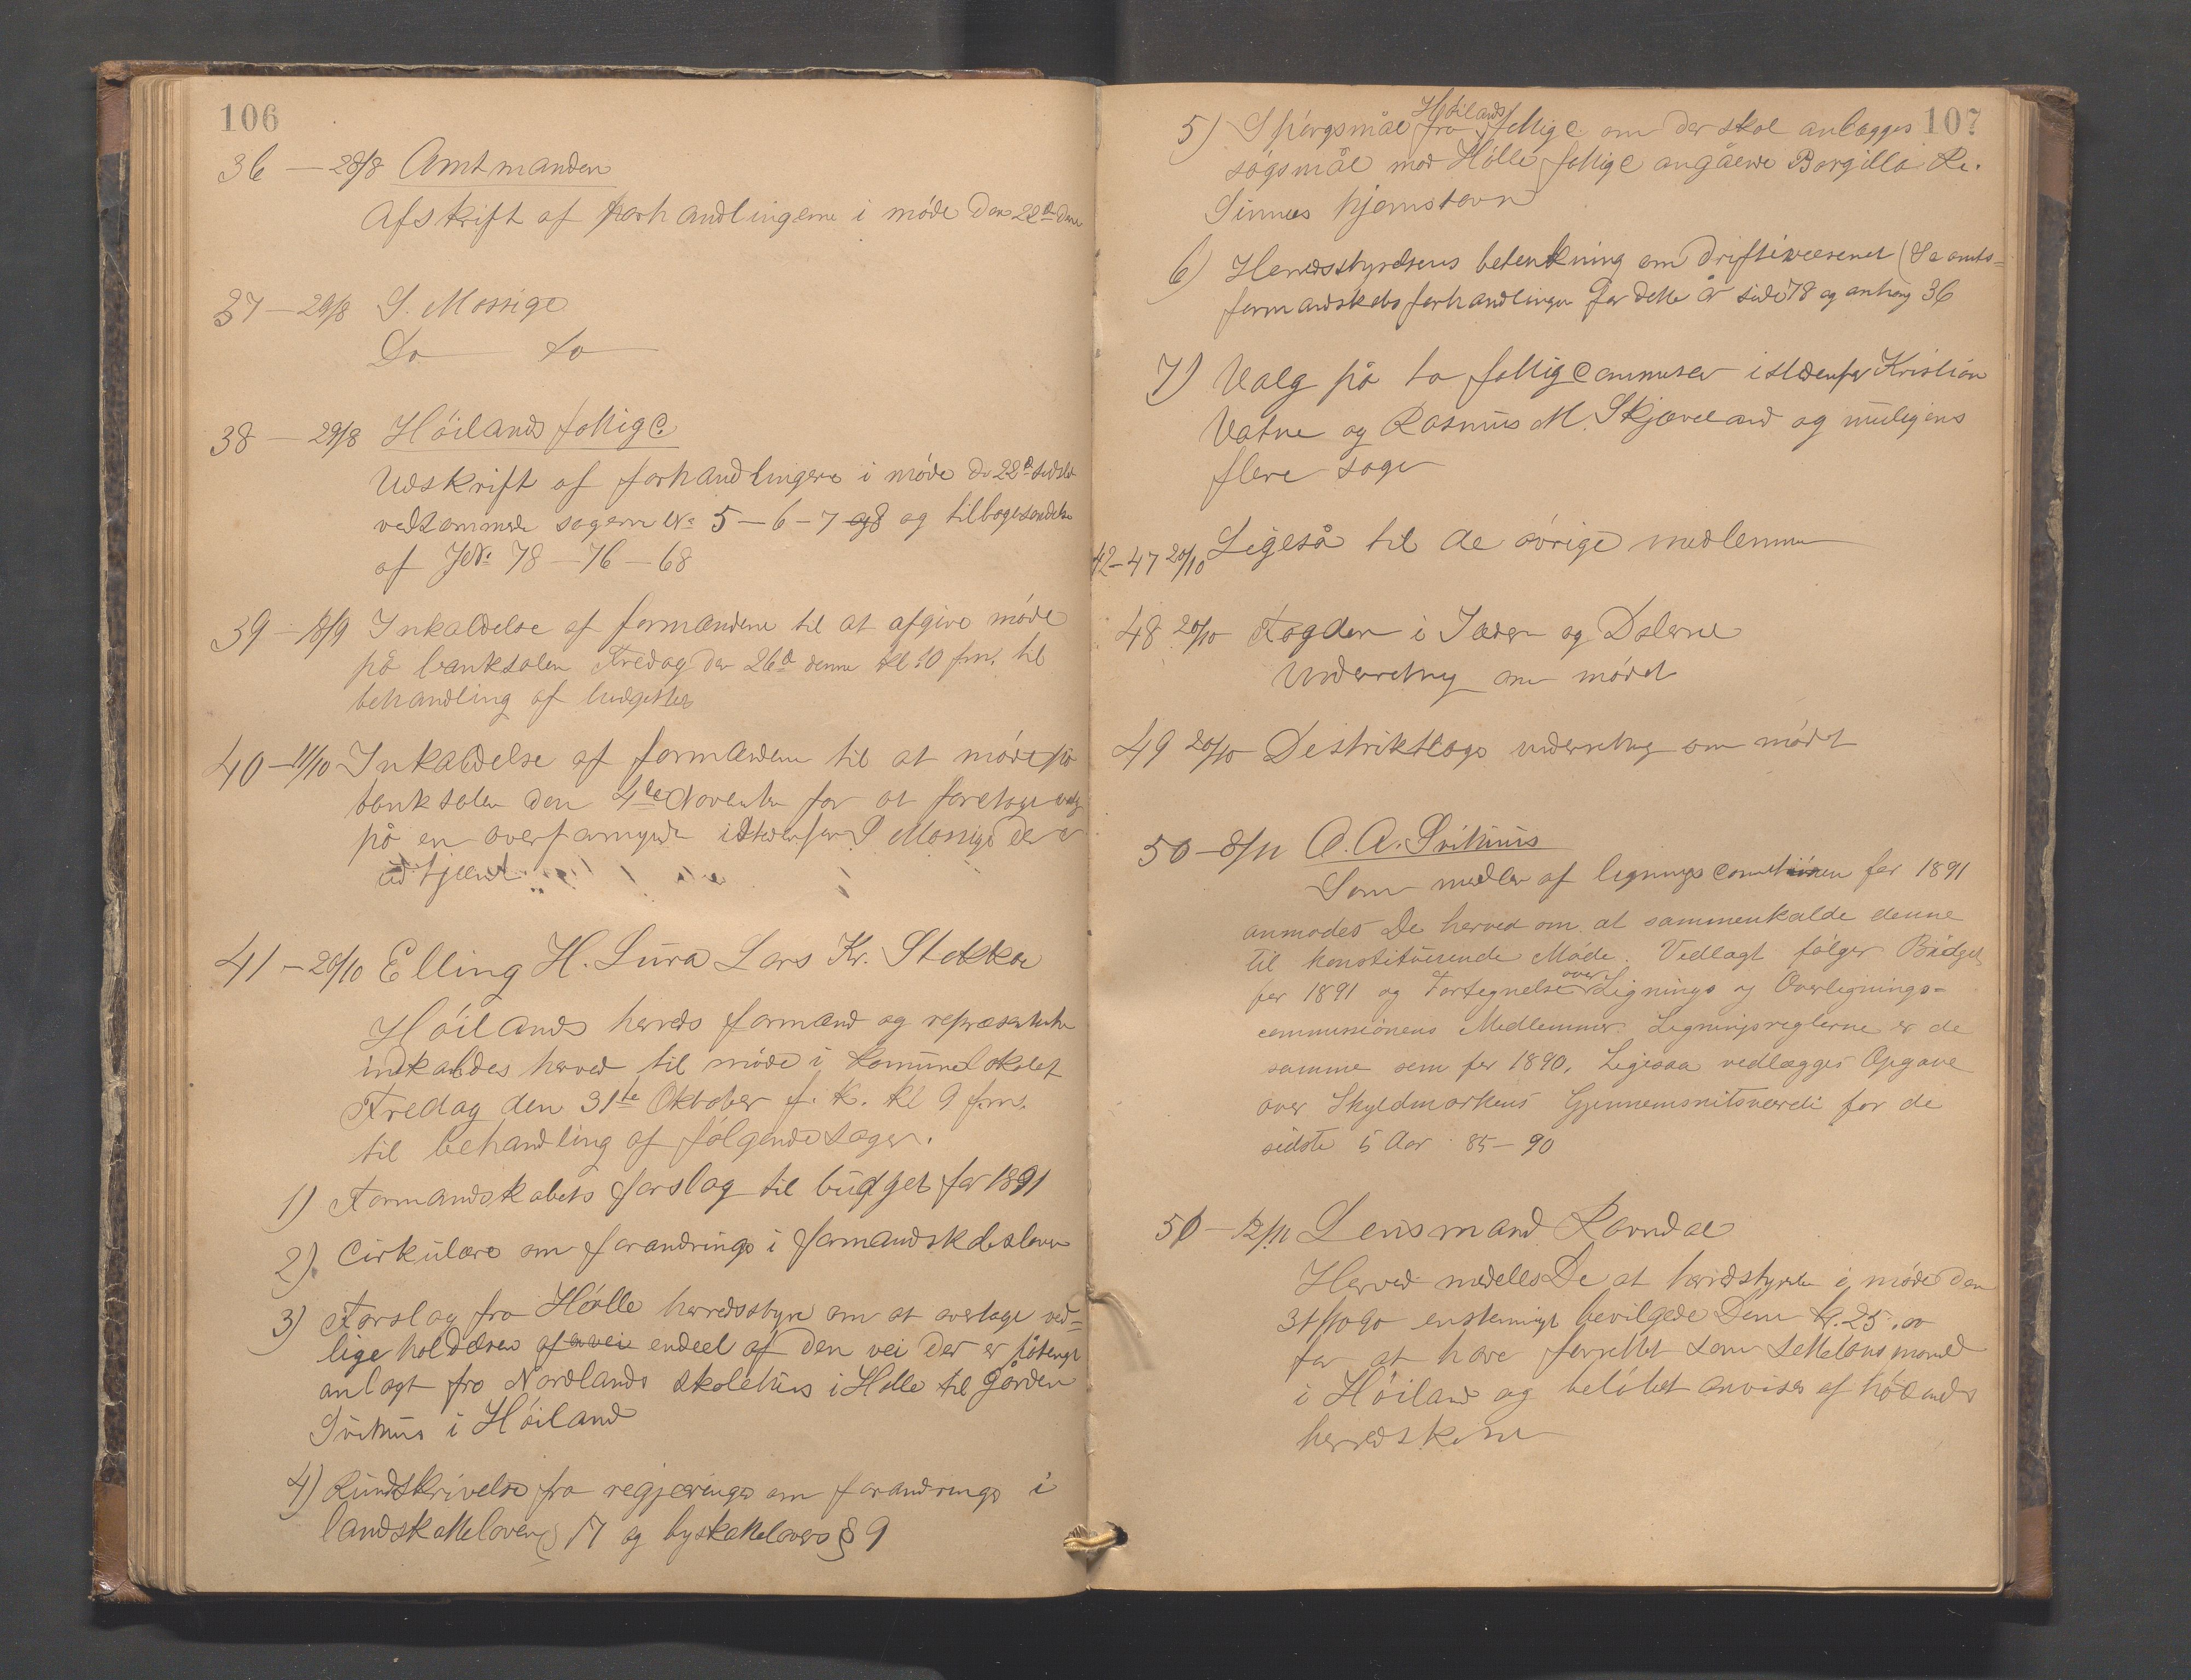 106
36 — 28/8 Amtmanden
Afskrift af forhandlingerne i møde den 22de dne
37 — 29/8 S. Mossige
Do — Do —
38 — 29/8 Höilands fattigc.
Udskrift af forhandlingene i møde d. 22d sidstl.
vedkommende sagerne No 5 — 6 — 7 og 8 og tilbagesendelse
af JNo 78 — 76 — 68
39 — 18/9 Inkaldelse af formændene til at afgive møde
på banksalen Fredag den 26d denne kl 10 fm. til
behandling af budgettes
40 — 11/10 Inkaldelse af formændene til at møde på
banksalen den 4de November for at foretage valg
på en overformynder istedenfor S Mossige der er
udtjent
41 — 20/10 Elling H. Lura Lars Kr. Stokka
Höilands herreds formænd og repræsentanter
indkaldes herved til møde i komunelokalet
Fredag den 31te Oktober f. k. kl 9 fm.
til behandling af følgende sager.
1) Formandskabets forslag til budget for 1891
2) Cirkulære om forandringe i formandskabsloven
3) Forslag fra Hölle herredsstyre om at overtage ved=
ligeholdelsen af a vei endeel af den vei der er påtengt
anlagt fra Nordlands skolehus i Hølle til gården
Svihus i Höiland
4) Rundskrivelse fra regjeringen om forandringe i
landskatteloven § 17 og byskattelovens § 9
107
5) Spörgsmål fra Höilands fattigc. om der skal anlægges
søgsmål mod Hölle fattigc angåene Borgilla Re.
Sinnes hjemstavn
6) Herredsstyrelsens betenkning om driftevæsenet (Se amts=
formandskabsforhandlinger for dette år side 78 og anhang 36
7) Valg på to fattigcommisær istedenfor Kristian
Vatne og Rasmus M. Skjæveland og muligens
flere sager
42 — 47 20/10 Ligeså til de övrige medlemmer
48 20/10 Fogden i Jæderen og Dalerne
Underretning om mödet
49 20/10 Destriktlæge underretning om mödet
50 — 8/11 A. A. Svihus
Som medlem af lignings commissionen for 1891
anmodes De herved om at sammenkalde denne
til konstituerende Møde. Vedlagt følger Budget
for 1891 og Fortegnelse over Lignings og Overlignings=
commissionens Medlemmer. Ligningsreglerne er de
samme som for 1890. Ligesaa vedlægges Opgave
over Skyldmarkens Gjennemsnitsværdi for de
sidste 5 Aar 85 — 90
51 — 12/11 Lensmand Ravndal
Herved meddeles De at herredstyrelsen i møde den
31/10 90 enstemmigt bevilgede Dem kr. 25,00
for at have forrettet som settelensmand
i Höiland og belöbet anvises af höilands
herredskasse